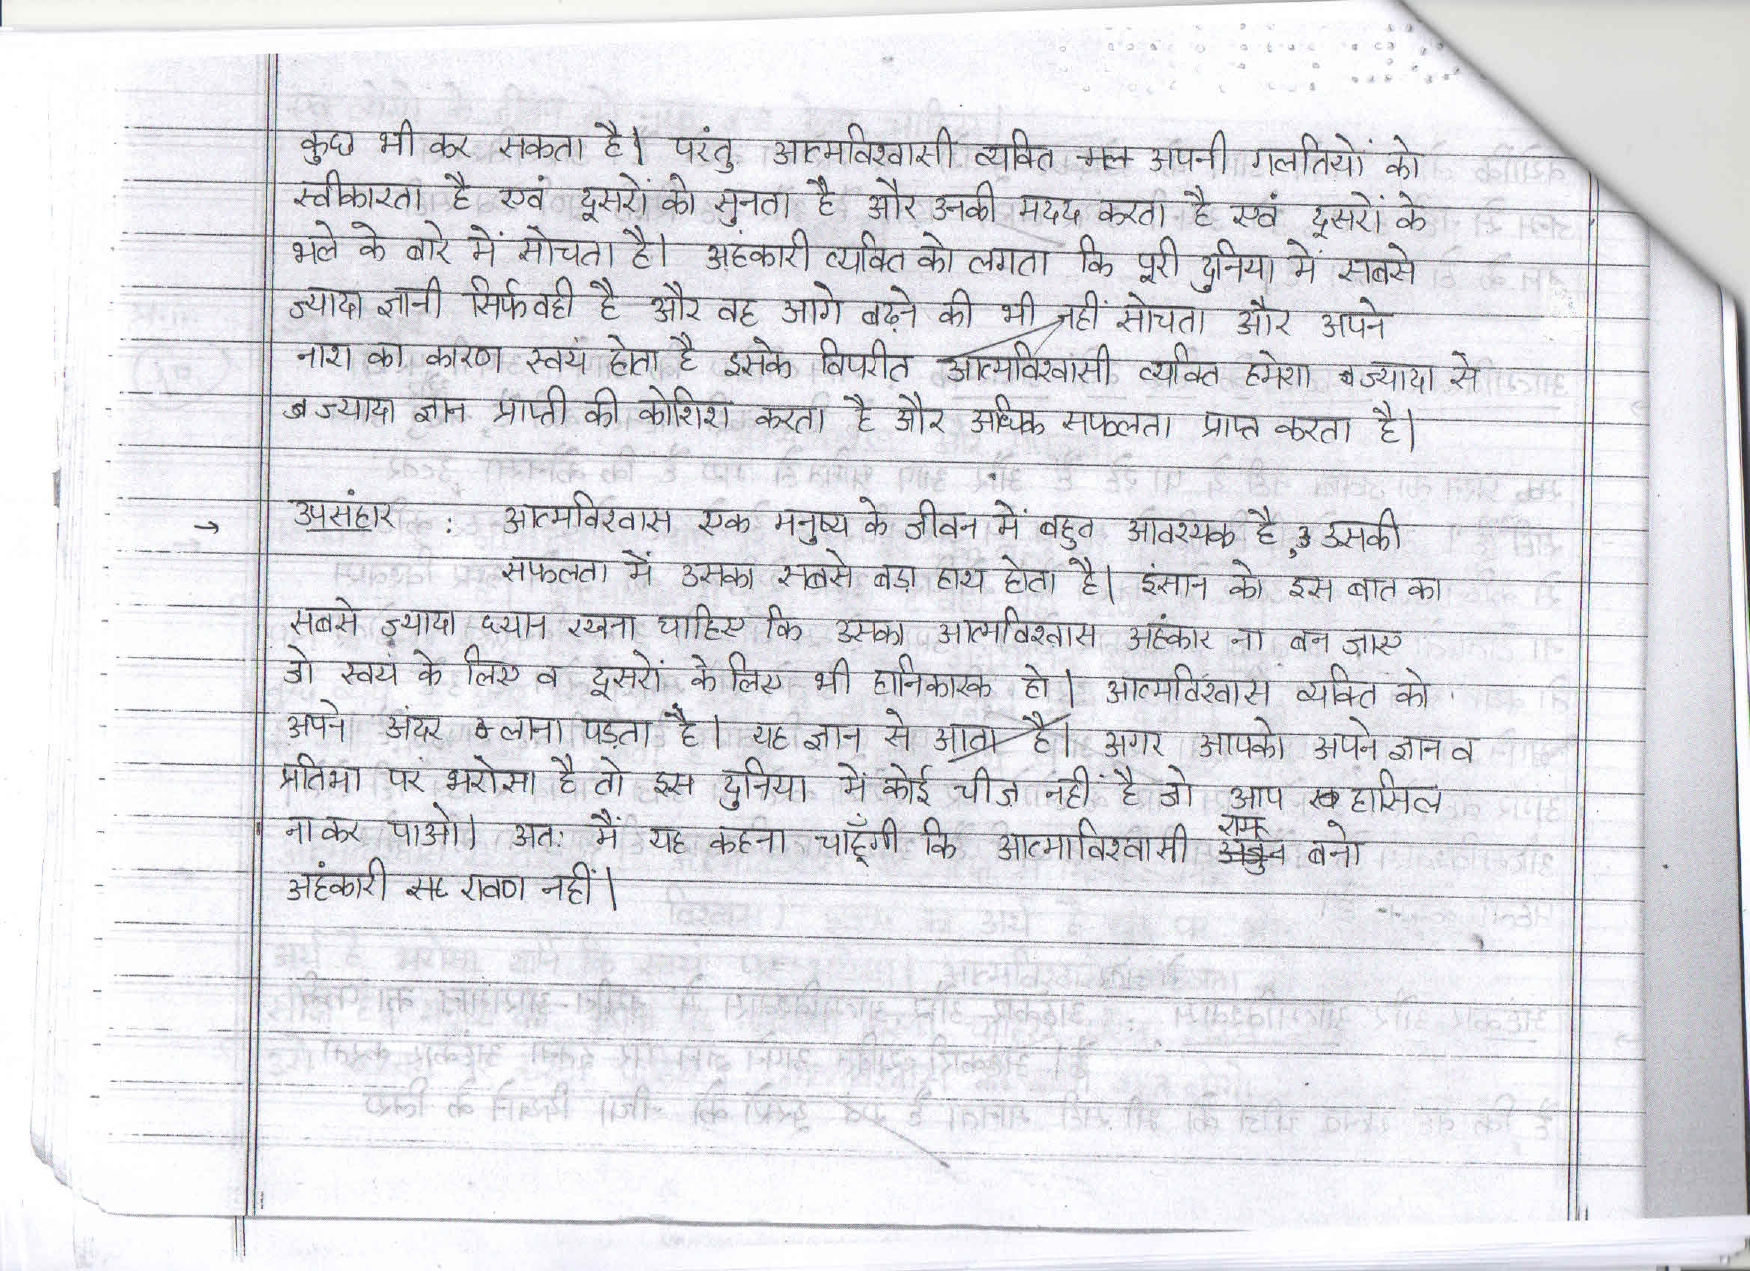 कुछ भी कर सकता है। परंतु आत्मविश्वासी व्यक्ति अपनी गलतियों को
स्वीकारता है एवं दूसरों को सुनता है और उनकी मदद करता है एवं दूसरों के
भले के बारे में सोचता है। अहंकारी व्यक्ति को लगता कि पूरी दुनिया में सबसे
ज्यादा ज्ञानी सिर्फ वही है और वह आगे बढ़ने की भी नहीं सोचता और अपने
नाश का कारण स्वयं होता है इसके विपरीत आत्मविश्वासी व्यक्ति हमेशा ज्यादा से
ज्यादा ज्ञान प्राप्ती की कोशिश करता है और अधिक सफलता प्राप्त करता है।
→ उपसंहार : आत्मविश्वास एक मनुष्य के जीवन में बहुत आवश्यक है, उसकी
सफलता में उसका सबसे बड़ा हाथ होता है। इंसान को इस बात का
सबसे ज़्यादा ध्यान रखना चाहिए कि उसका आत्मविश्वास अहंकार ना बन जाए
जो स्वयं के लिए व दूसरों के लिए भी हानिकारक हो। आत्मविश्वास व्यक्ति को
अपने अंदर लाना पड़ता है। यह ज्ञान से आता है। अगर आपको अपने ज्ञान व
प्रतिभा पर भरोसा है तो इस दुनिया में कोई चीज नहीं है जो आप हासिल
ना कर पाओ। अतः मैं यह कहना चाहूँगी कि आत्माविश्वासी राम बनो
अहंकारी रावण नहीं।